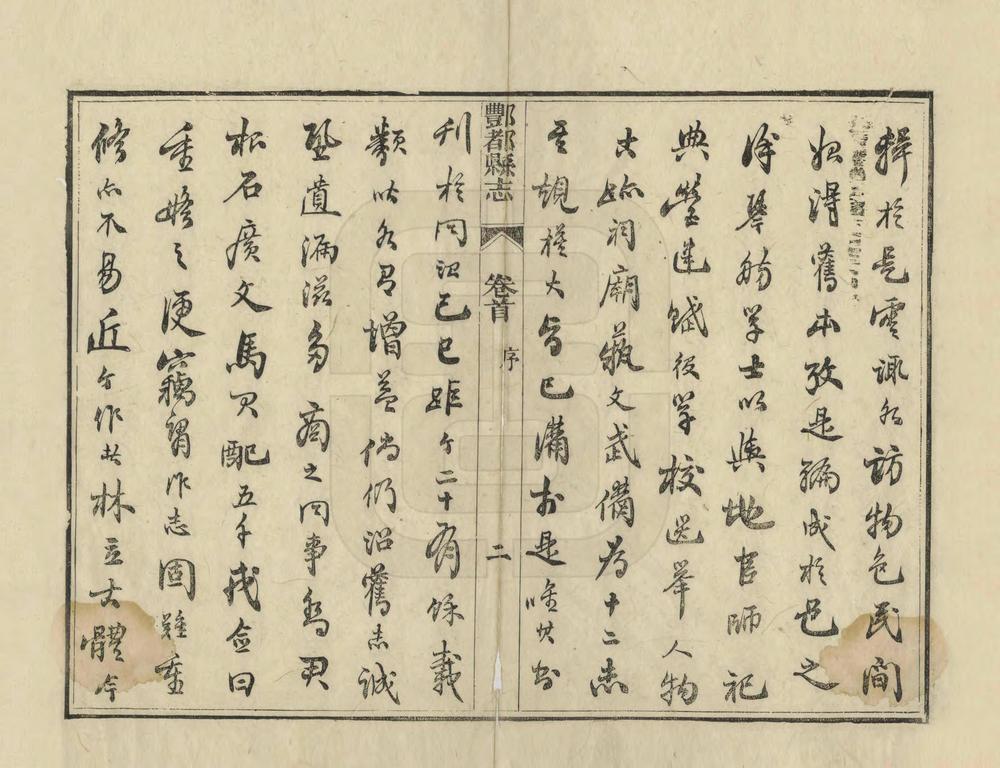 輯於是諏訪物色民間
始得舊本攷是編成於邑之
徐琴舫學士以輿地官師祀
典營建賦役學校選舉人物
古跡祠廟藝文武備為十二志
其規模大旨已備於是唯其書
刊於同治己巳距今二十有餘載
類有增益倘仍沿舊志誠
恐遺漏滋多商之同事尹
松石廣文馬配五千戎僉曰
重修之便竊謂作志固難重
修亦不易近今作者林立古體今
酆都縣志
卷首
序
二